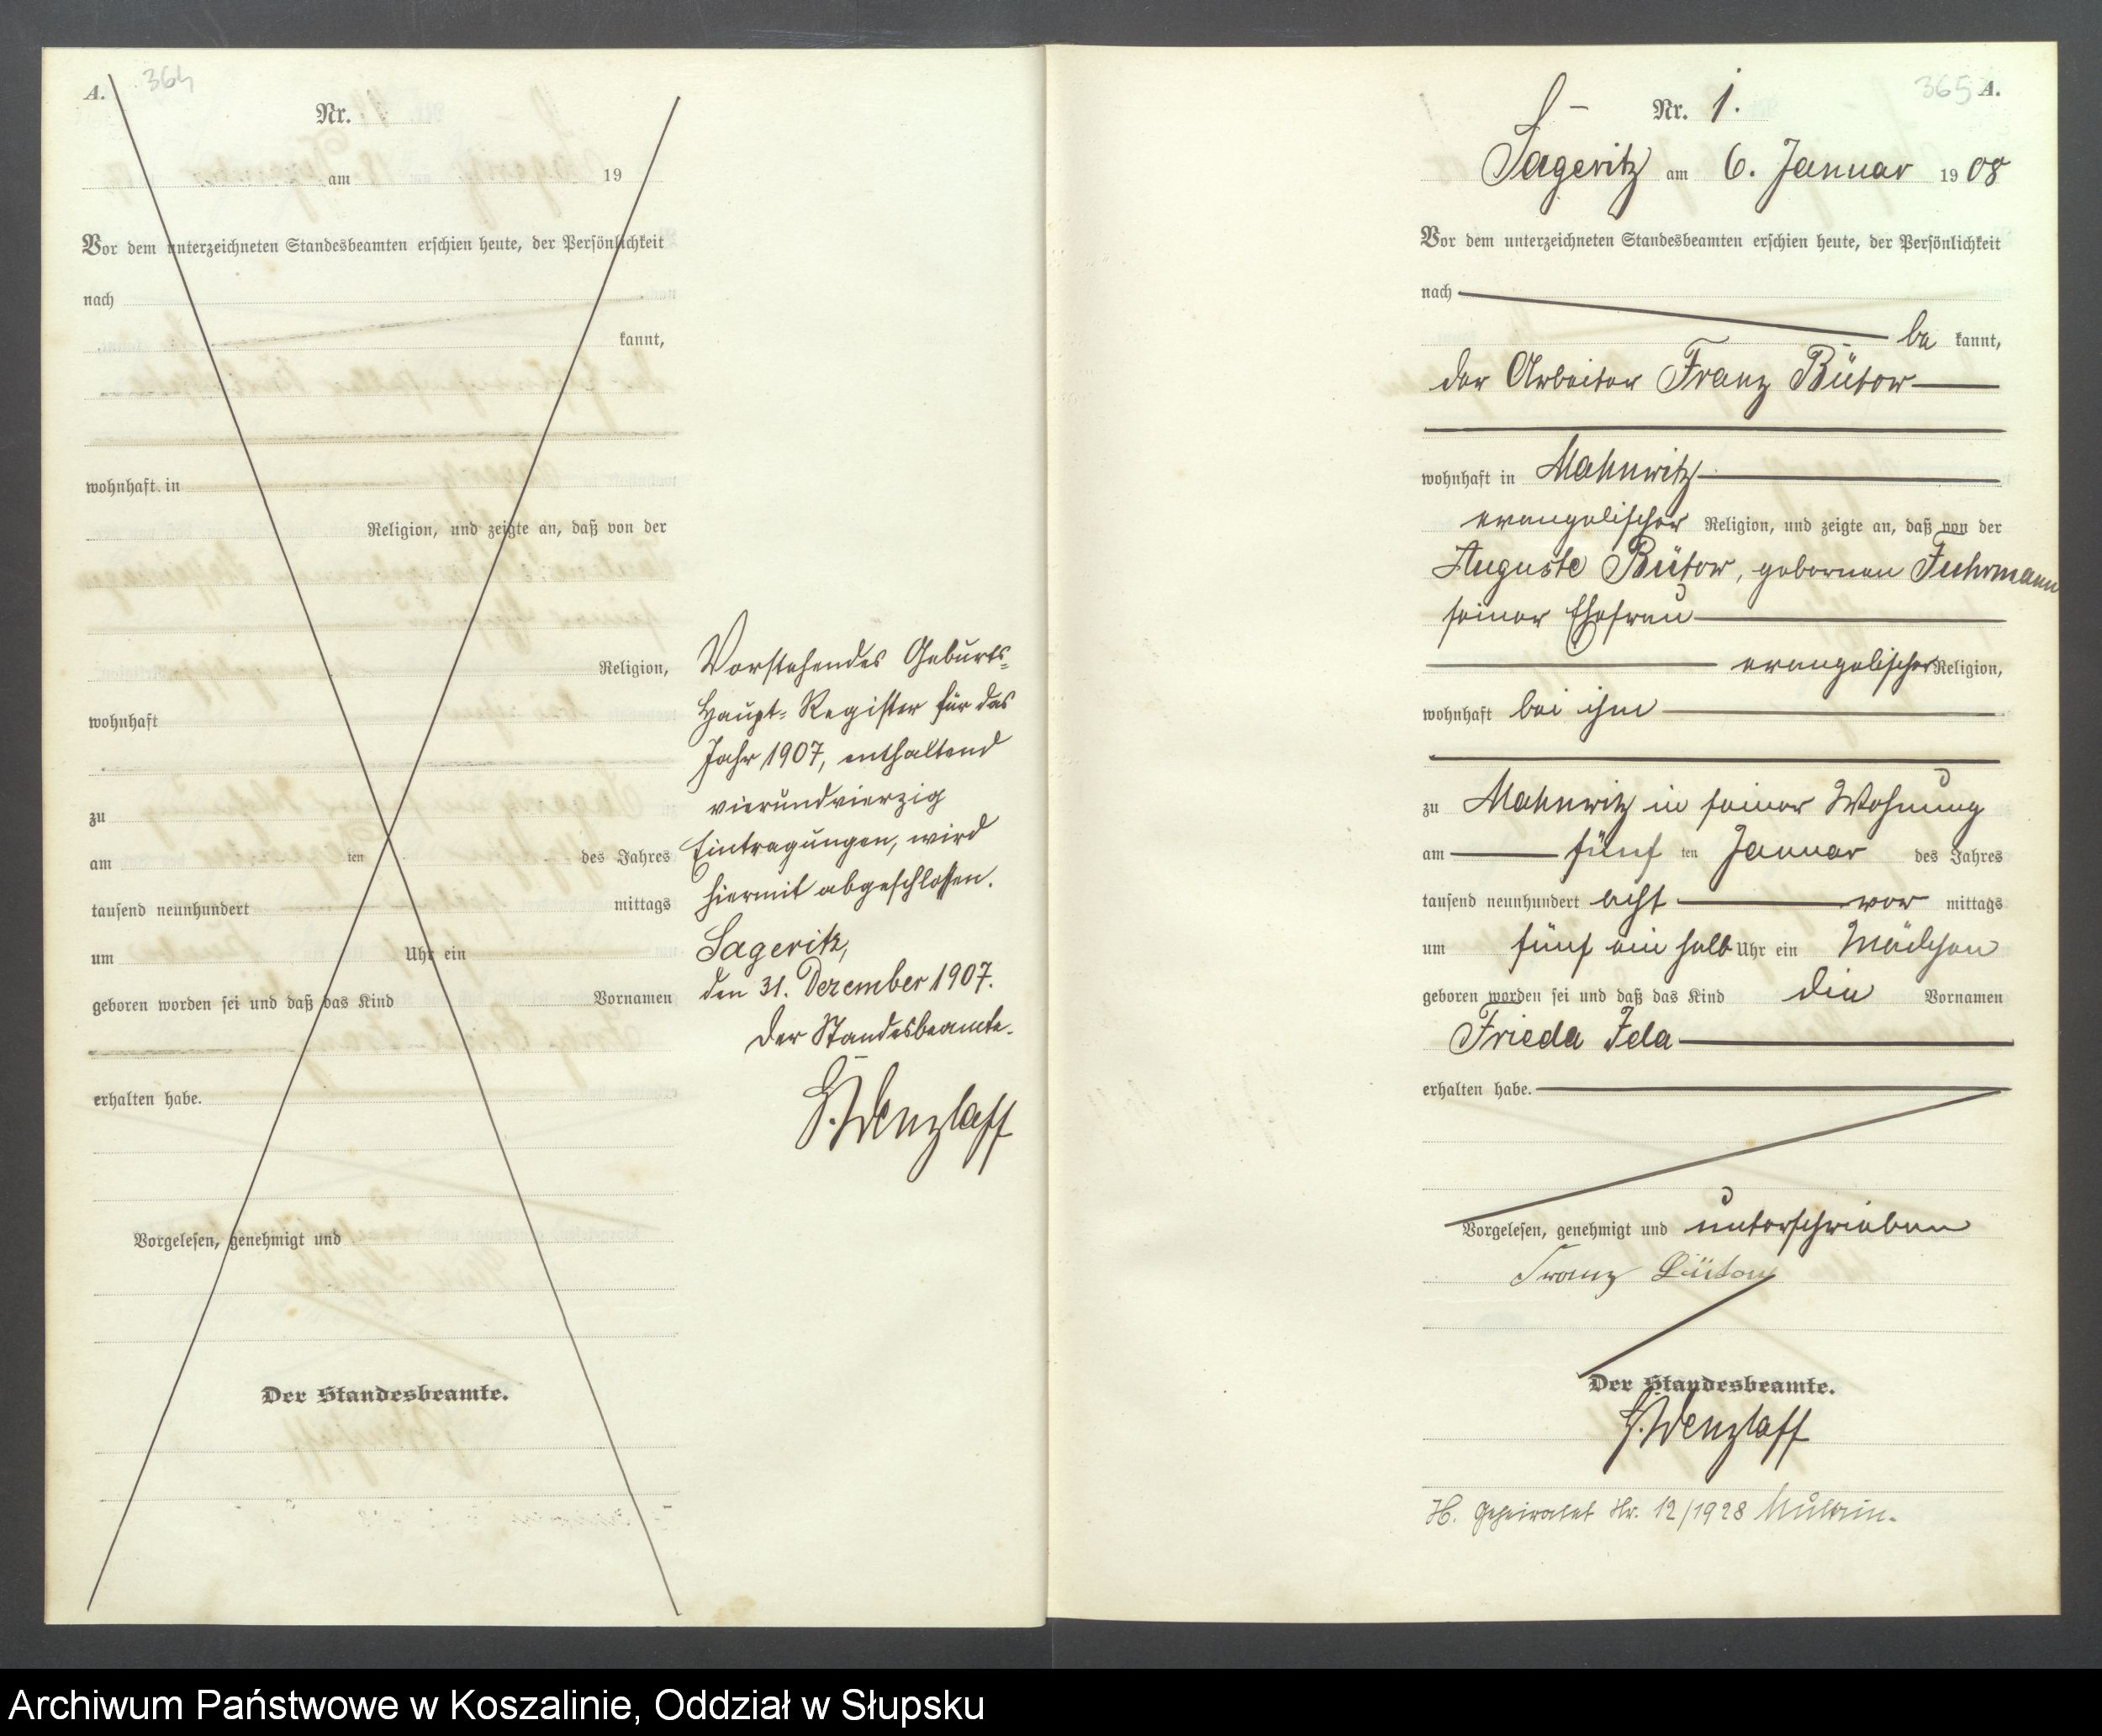 A. 364
Nr.
am 19
Vor dem unterzeichneten Standesbeamten erschien heute, der Persönlichkeit
nach
kannt,
wohnhaft in
Religion, und zeigte an, daß von der
Religion,
wohnhaft
zu
am ten des Jahres
tausend neunhundert mittags
um Uhr ein
geboren worden sei und daß das Kind Vornamen
erhalten habe.
Vorgelesen, genehmigt und
Der Standesbeamte.
Vorstehendes Geburts-
Haupt-Register für das
Jahr 1907, enthaltend
vierundvierzig
Eintragungen, wird
hiermit abgeschlossen.
Sageritz,
den 31. Dezember 1907.
Der Standesbeamte.
G. Wenzlaff
365 A.
Nr. 1.
Sageritz am 6. Januar 1908
Vor dem unterzeichneten Standesbeamten erschien heute, der Persönlichkeit
nach
be kannt,
der Arbeiter Franz Bütow
wohnhaft in Mahnwitz
evangelischer Religion, und zeigte an, daß von der
Auguste Bütow, geborenen Fuhrmann
seiner Ehefrau
evangelischer Religion,
wohnhaft bei ihm
zu Mahnwitz in seiner Wohnung
am fünf ten Januar des Jahres
tausend neunhundert acht vor mittags
um fünf ein halb Uhr ein Mädchen
geboren worden sei und daß das Kind die Vornamen
Frieda Ida
erhalten habe.
Vorgelesen, genehmigt und unterschrieben
Franz Bütow
Der Standesbeamte.
G. Wenzlaff
H. Geheiratet Nr. 12/1928
Archiwum Państwowe w Koszalinie, Oddział w Słupsku